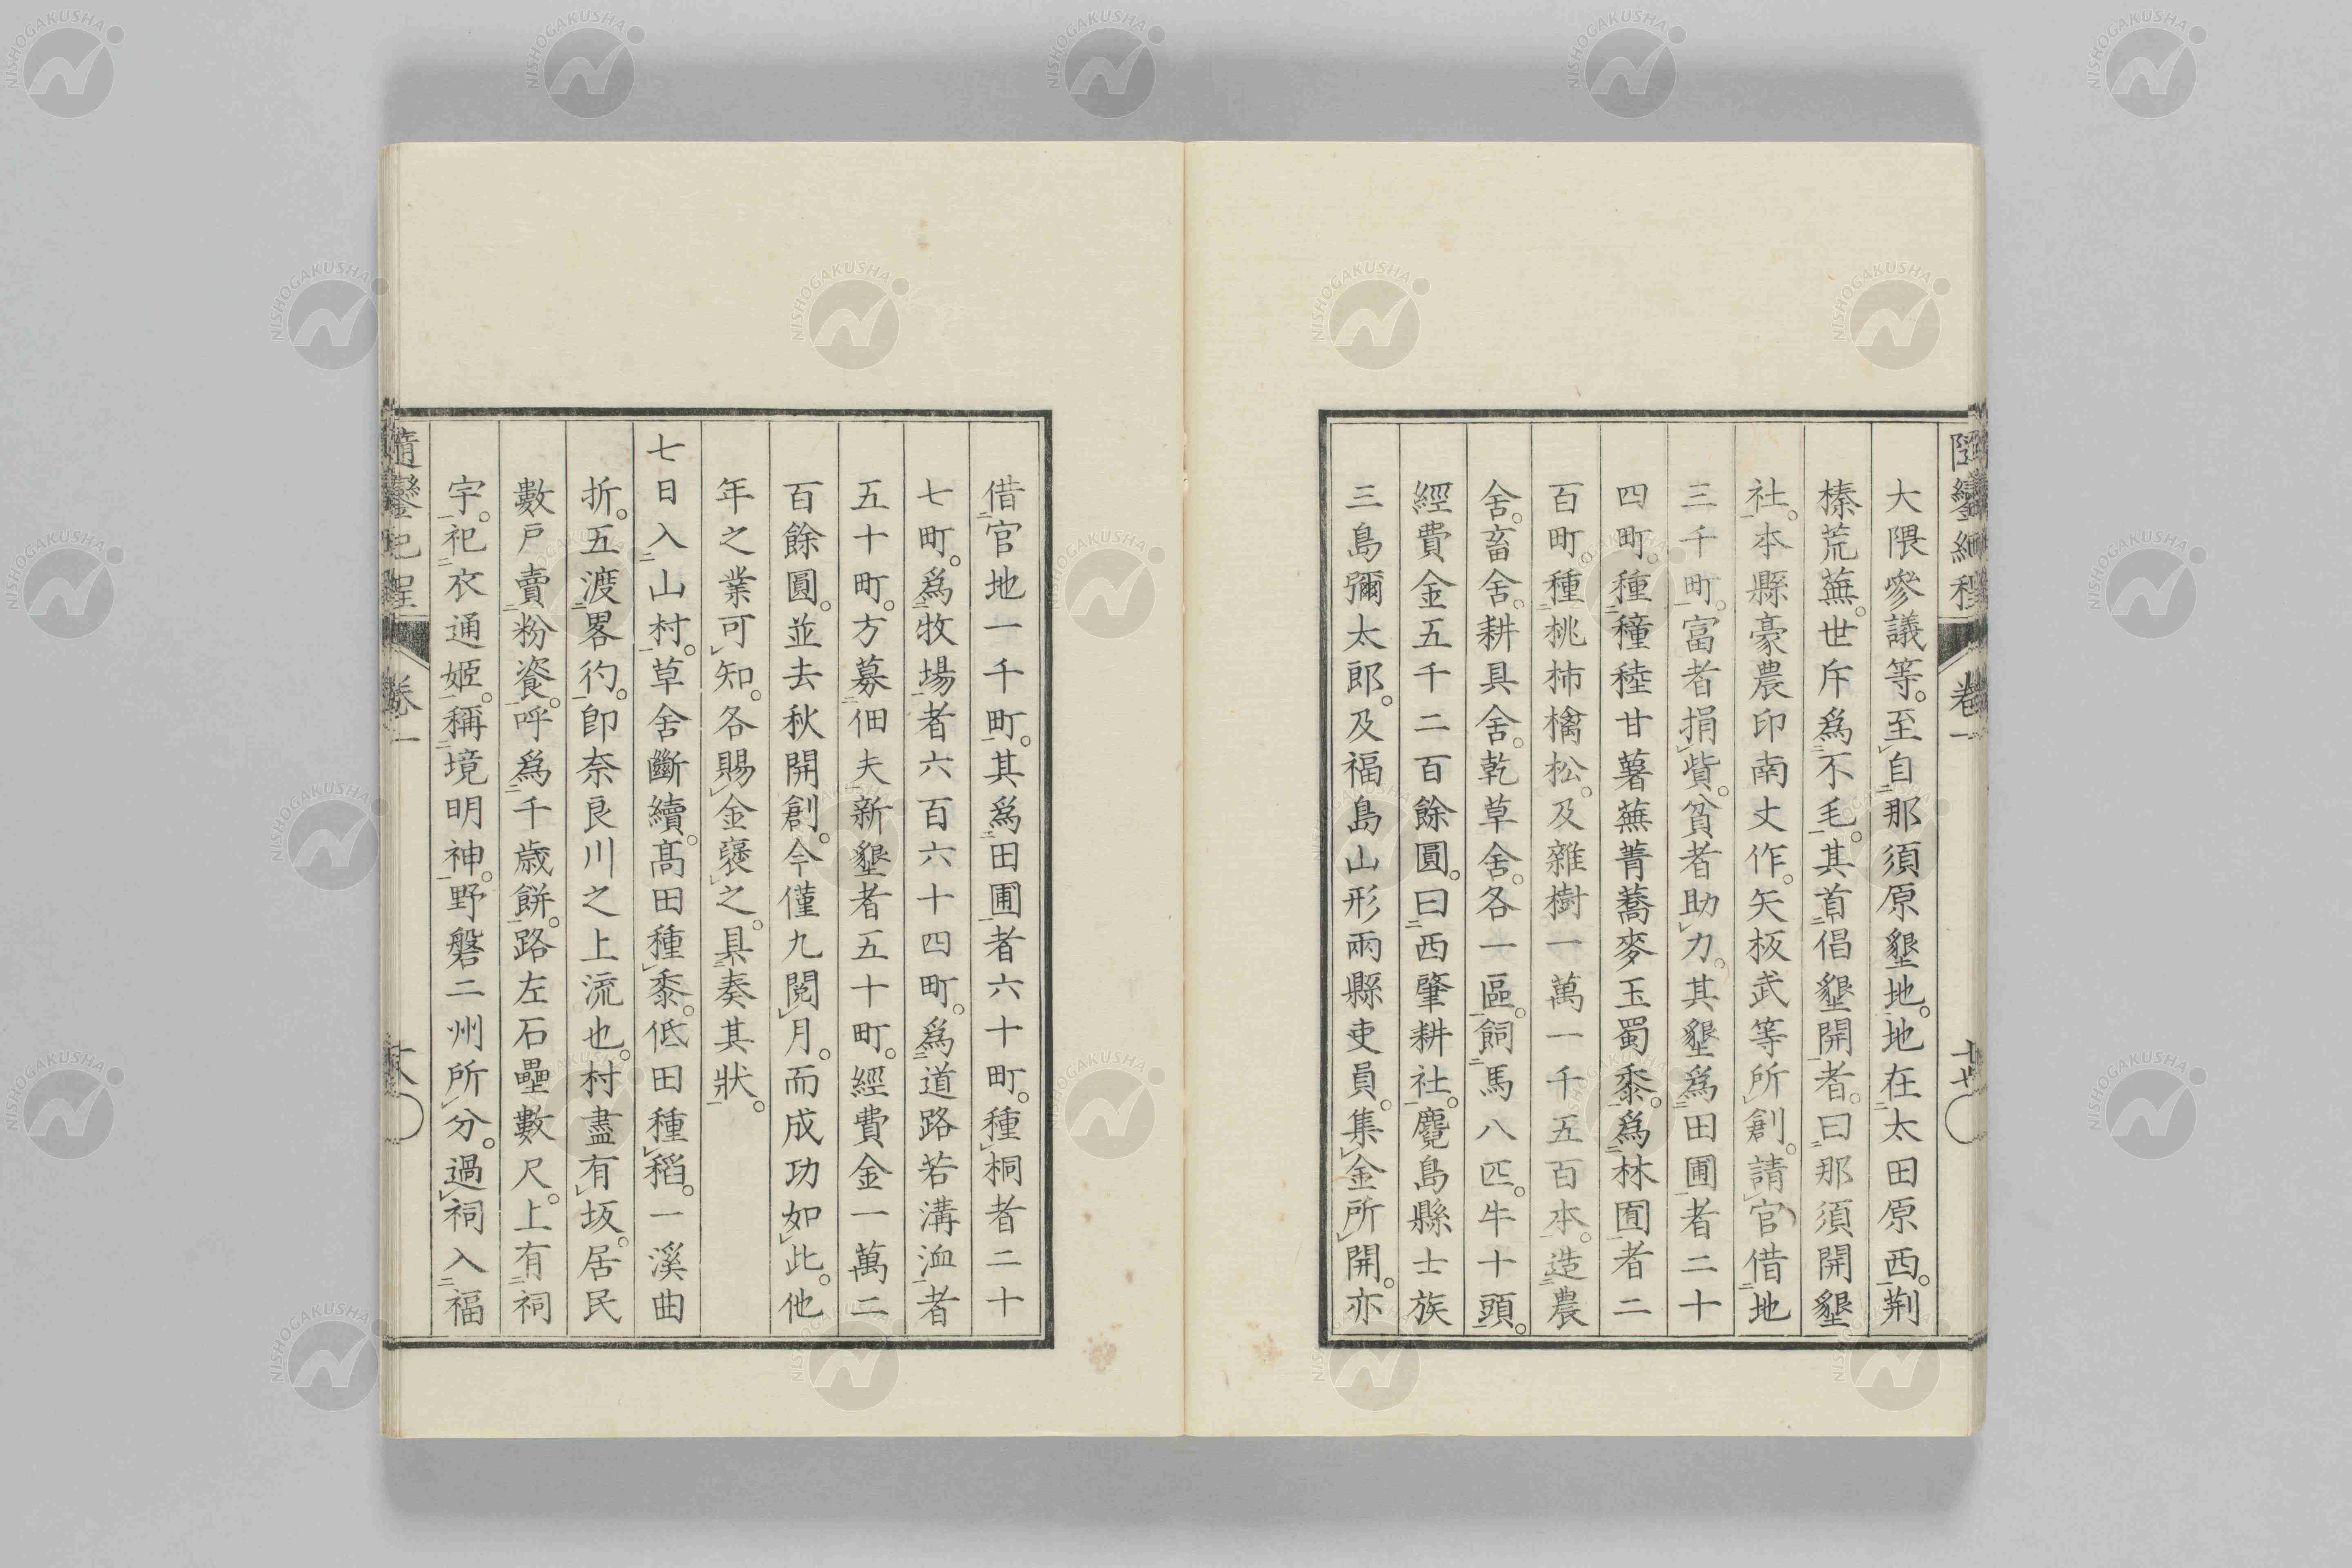 隨鑾紀程 卷一 十七
大隈參議等。至自那須原墾地。地在太田原西。荆
榛荒蕪。世斥爲不毛。其首倡墾開者。曰那須開墾
社。本縣豪農印南丈作。矢板武等所創。請官借地
三千町。富者捐貲。貧者助力。其墾爲田圃者二十
四町。種穜稑甘薯蕪菁蕎麥玉蜀黍。爲林囿者二
百町。種桃柿檎松。及雜樹一萬一千五百本。造農
舍。畜舍。耕具舍。乾草舍。各一區。飼馬八匹。牛十頭。
經費金五千二百餘圓。曰西肇耕社。麑島縣士族
三島彌太郎。及福島山形兩縣吏員。集金所開。亦
借官地一千町。其爲田圃者六十町。種桐者二十
七町。爲牧場者六百六十四町。爲道路若溝洫者
五十町。方募佃夫新墾者五十町。經費金一萬二
百餘圓。並去秋開創。今僅九閲月。而成功如此。他
年之業可知。各賜金襃之。具奏其狀。
七日入山村。草舍斷續。髙田種黍。低田種稻。一溪曲
折。五渡畧彴。卽奈良川之上流也。村盡有坂。居民
數戶賣粉餈。呼爲千歲餅。路左石壘數尺。上有祠
宇。祀衣通姬。稱境明神。野磐二州所分。過祠入福
隨鑾紀程 卷一
NISHOGAKUSHA